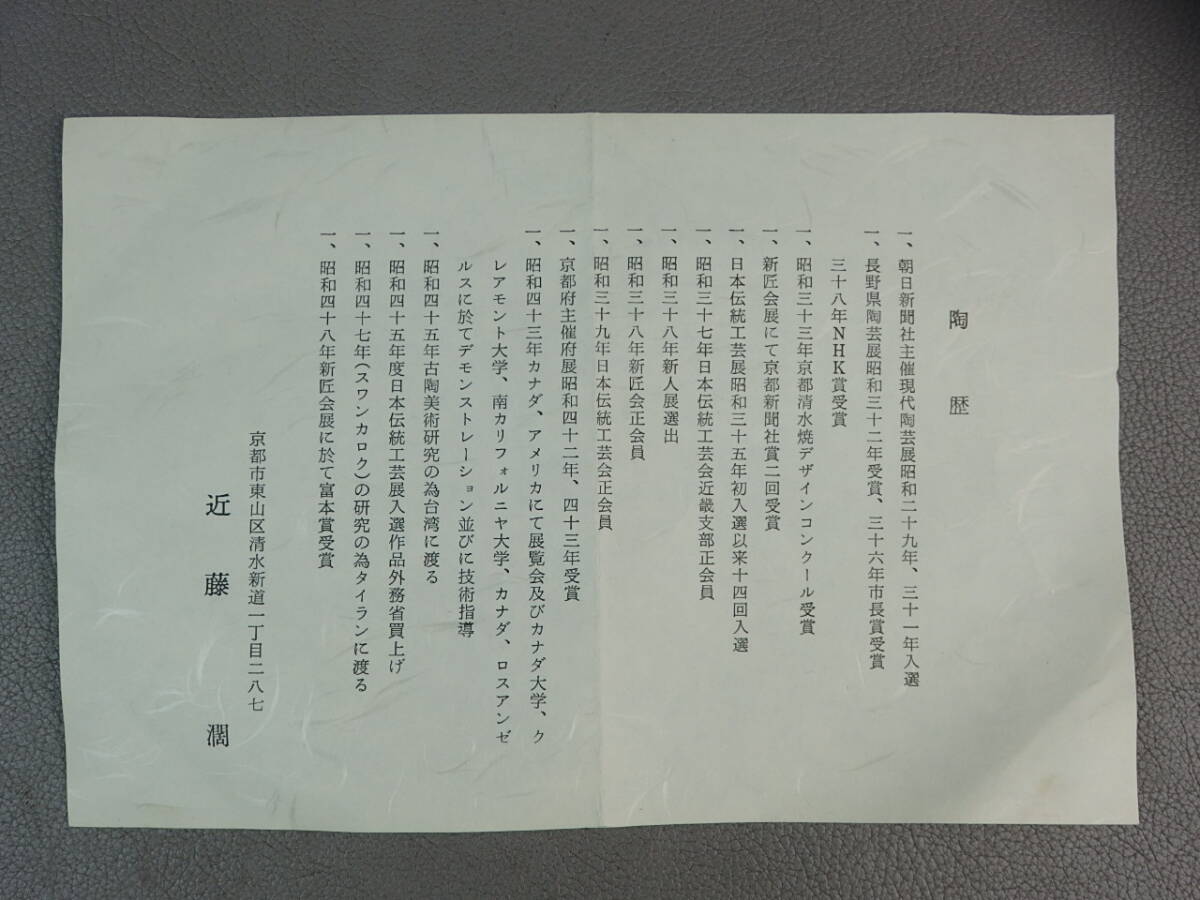 陶歴
一、朝日新聞社主催現代陶芸展昭和二十九年、三十一年入選
一、長野県陶芸展昭和三十二年受賞、三十六年市長賞受賞
三十八年NHK賞受賞
一、昭和三十三年京都清水焼デザインコンクール受賞
一、新匠会展にて京都新聞社賞二回受賞
一、日本伝統工芸展昭和三十五年初入選以来十四回入選
一、昭和三十七年日本伝統工芸会近畿支部正会員
一、昭和三十八年新人展選出
一、昭和三十八年新匠会正会員
一、昭和三十九年日本伝統工芸会正会員
一、京都府主催府展昭和四十二年、四十三年受賞
一、昭和四十三年カナダ、アメリカにて展覧会及びカナダ大学、ク
レアモント大学、南カリフォルニヤ大学、カナダ、ロスアンゼ
ルスに於てデモンストレーション並びに技術指導
一、昭和四十五年古陶美術研究の為台湾に渡る
一、昭和四十五年度日本伝統工芸展入選作品外務省買上げ
一、昭和四十七年(スワンカロク)の研究の為タイランに渡る
一、昭和四十八年新匠会展に於て富本賞受賞
京都市東山区清水新道一丁目二八七
近藤濶